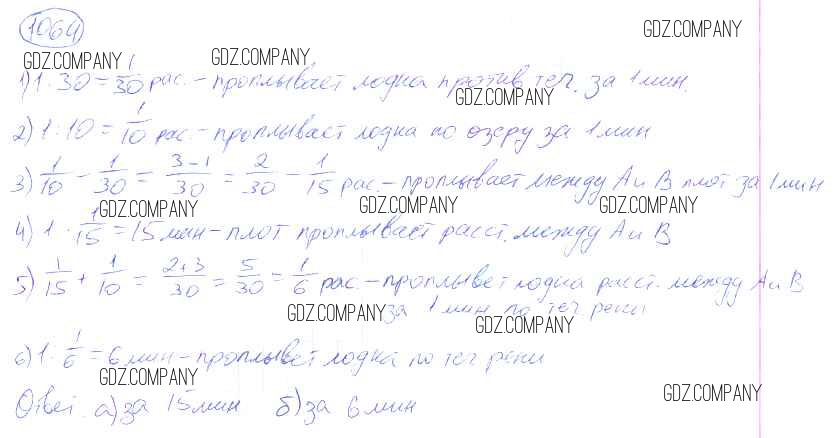 1064
GDZ.COMPANY
GDZ.COMPANY GDZ.COMPANY
1) 1 : 30 = 1/30 рас. – проплывает лодка против теч. за 1 мин.
GDZ.COMPANY
2) 1 : 10 = 1/10 рас. – проплывает лодка по озеру за 1 мин
3) 1/10 – 1/30 = 3-1/30 = 2/30 – 1/15 рас. – проплывает между А и В плот за 1 мин
GDZ.COMPANY GDZ.COMPANY GDZ.COMPANY
4) 1 · 1/15 = 15 мин – плот проплывает расст. между А и В
5) 1/15 + 1/10 = 2+3/30 = 5/30 = 1/6 рас. – проплывет лодка расст. между А и В
за 1 мин по теч. реки
GDZ.COMPANY GDZ.COMPANY
6) 1 · 1/6 = 6 мин – проплывет лодка по теч реки
GDZ.COMPANY GDZ.COMPANY
Ответ. а) за 15 мин б) за 6 мин